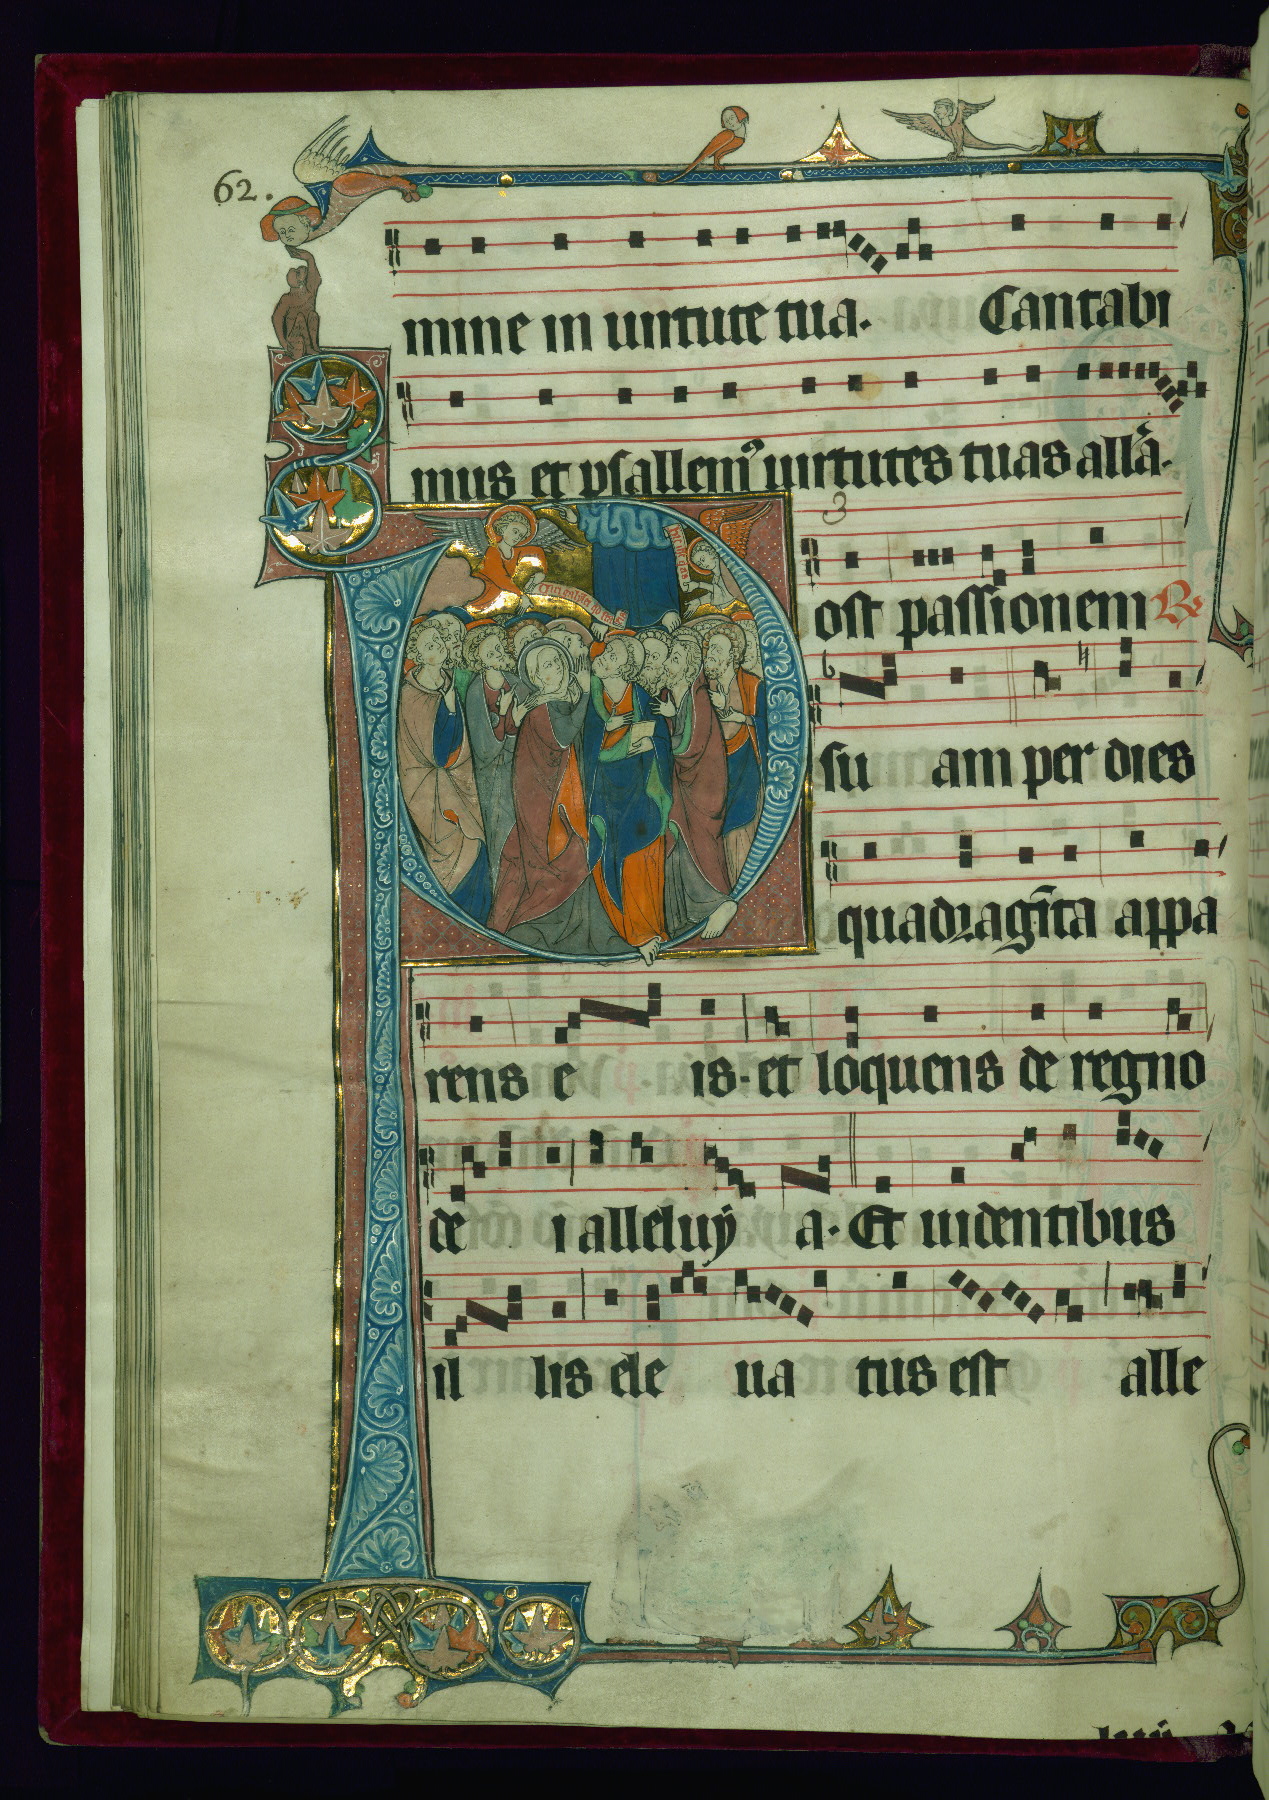 62.
mine in uirtute tua. Cantabi
mus et psallemꝰ uirtutes tuas alla̅.
3
ost passionem R
su am per dies
quadragi̅ta appa
rens e is. et loquens de regno
de i alleluÿ a. Et uidentibus
il lis ele ua tus est alle